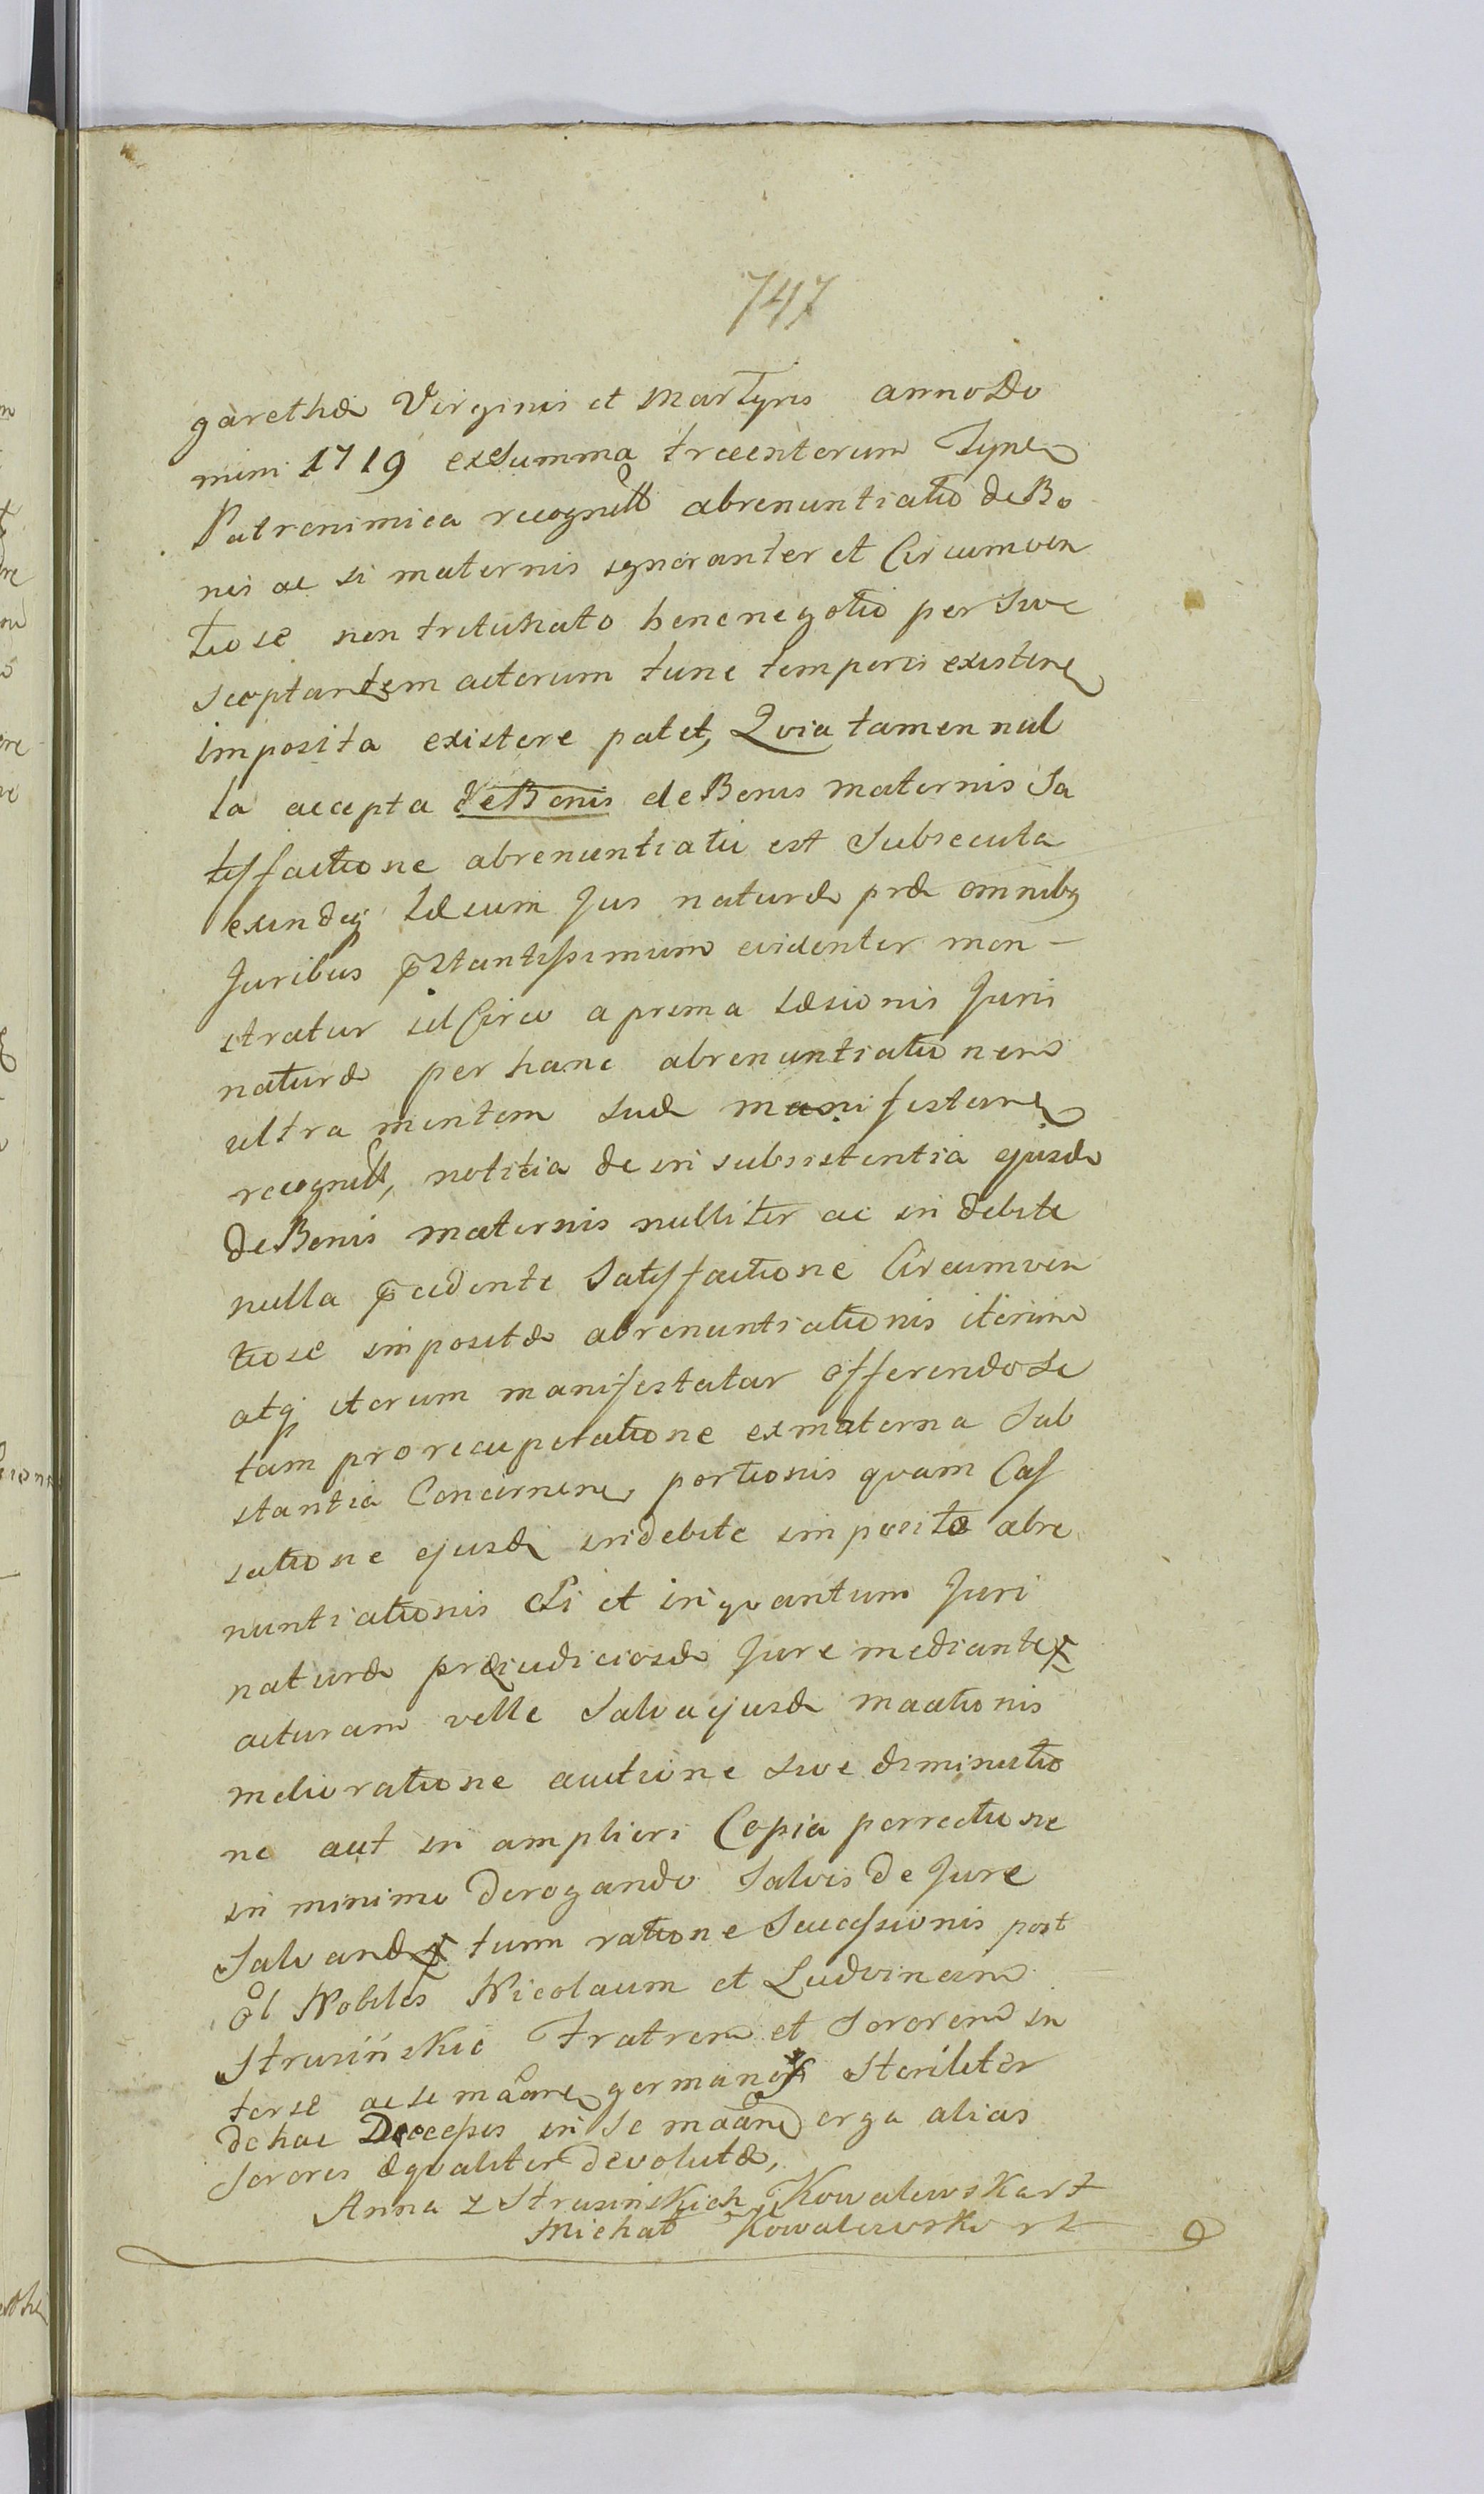 747
garethæ Virginis et Martyris anno Do
mini 1719 ex Summa trecentorum Tynf
Patronimica recognitt abrenuntiatio de Bo
nis ac si maternis ignoranter et Circumven
tiose non trituhato bene negotio per sive
sceptantem actorum tunc temporis existen
imposita existere patet, Qvia tamen nul
la accepta de Bonis de Bonis maternis Sa
tisfactione abrenuntiatii est Subsecuta
exindeq læsum Jus naturæ præ omnibq
Juribus pstantissimum evidenter mon-
stratur idCirco a prima læsionis Juris
naturæ per hanc abrenuntiationem
ultra mentem suæ manifestan
recognitt, notitia de in subsistentia ejusd
de Bonis maternis nulliter ac indebite
nulla pcedente Satisfactione Circumven
tiose impositæ abrenuntiationis iterum
atq iterum manifestatar offerendo se
tam pro recuperatione ex materna Sub
stantia Concernen portionis quam Cas
satione ejusd indebite impositæ abre
nuntiationis Si et in qvantum Juri
naturæ præjudiciosæ Jure mediante
acturam velle Salva ejusd maationis
melioratione auctione sive diminutio
ne aut in ampliori Copia porrectione
in minimo derogando Salvis de Jure
Salvand tum ratione Successionis post
ol Nobiles Nicolaum et Ludvinam
Strusińskie Fratrem et Sororem in
ter se ac se maan germanos Steriliter
de hac Decessis in se maan erga alias
Sorores æqvaliter devolutæ,
Anna z Strusińskich Kowalewska rt
Michał Kowalewski rt